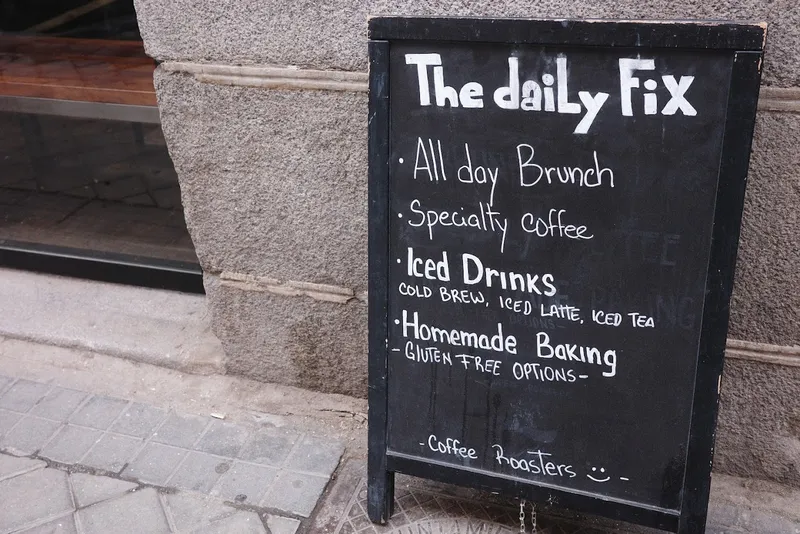 The daiLy Fix
• All day Brunch
• Specialty coffee
• Iced Drinks
COLD BREW, ICED LATTE, ICED TEA
• Homemade Baking
- GLUTEN FREE OPTIONS -
- Coffee Roasters :) -